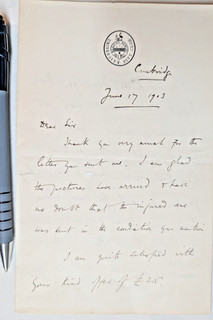 Cambridge
June 17 1903
Dear Sir
Thank you very much for the
letter you sent me. I am glad
the pictures have arrived & have
no doubt that the injured one
was sent in the condition you mention
I am quite satisfied with
your kind offer of £25